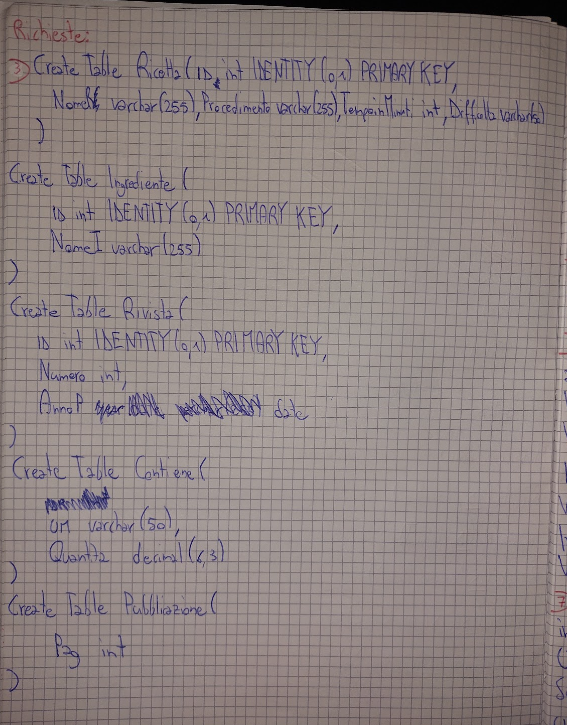 Richieste:
3) Create Table Ricetta ( ID int IDENTITY (0,1) PRIMARY KEY,
NomeR varchar (255), Procedimento varchar (255), TempoinMinut. int, Difficolta varchar(50)
)
Create Table Ingrediente (
ID int IDENTITY (0,1) PRIMARY KEY,
NomeI varchar (255)
)
Create Table Rivista (
ID int IDENTITY (0,1) PRIMARY KEY,
Numero int,
AnnoP date
)
Create Table Contiene (
UM varchar (50),
Quantita decimal (6,3)
)
Create Table Pubbliazione (
Pag int
)